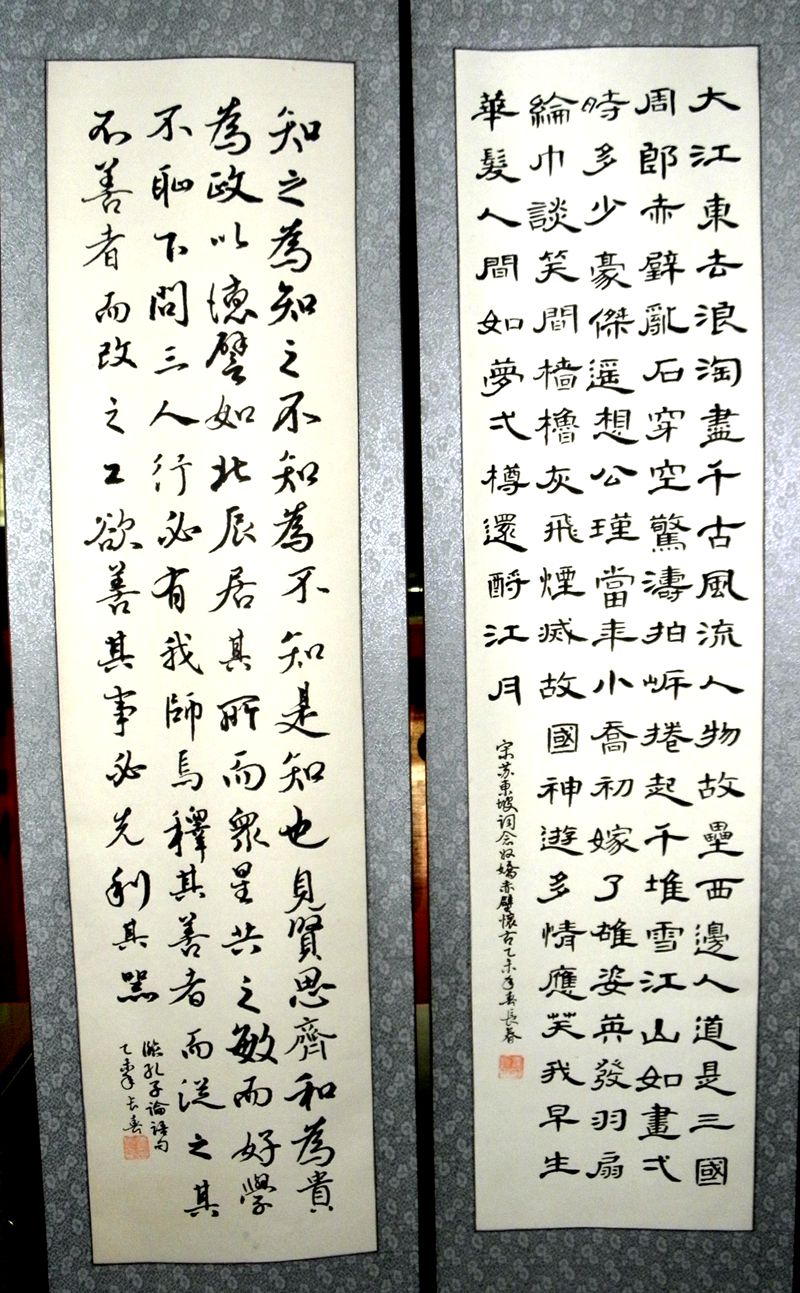 大江東去浪淘盡千古風流人物故壘西邊人道是三國
周郎赤壁亂石穿空驚濤拍岸捲起千堆雪江山如畫弌
時多少豪傑遥想公瑾當年小喬初嫁了雄姿英發羽扇
綸巾談笑間檣櫓灰飛煙滅故國神遊多情應笑我早生
華髮人間如夢弌樽還酹江月
宋苏東坡词念奴嬌赤壁懷古乙未年春長春
知之為知之不知為不知是知也見賢思齊和為貴
為政以德譬如北辰居其所而眾星共之敏而好學
不恥下問三人行必有我師焉釋其善者而從之其
不善者而改之工欲善其事必先利其器
臨孔子論語句
乙未年长春